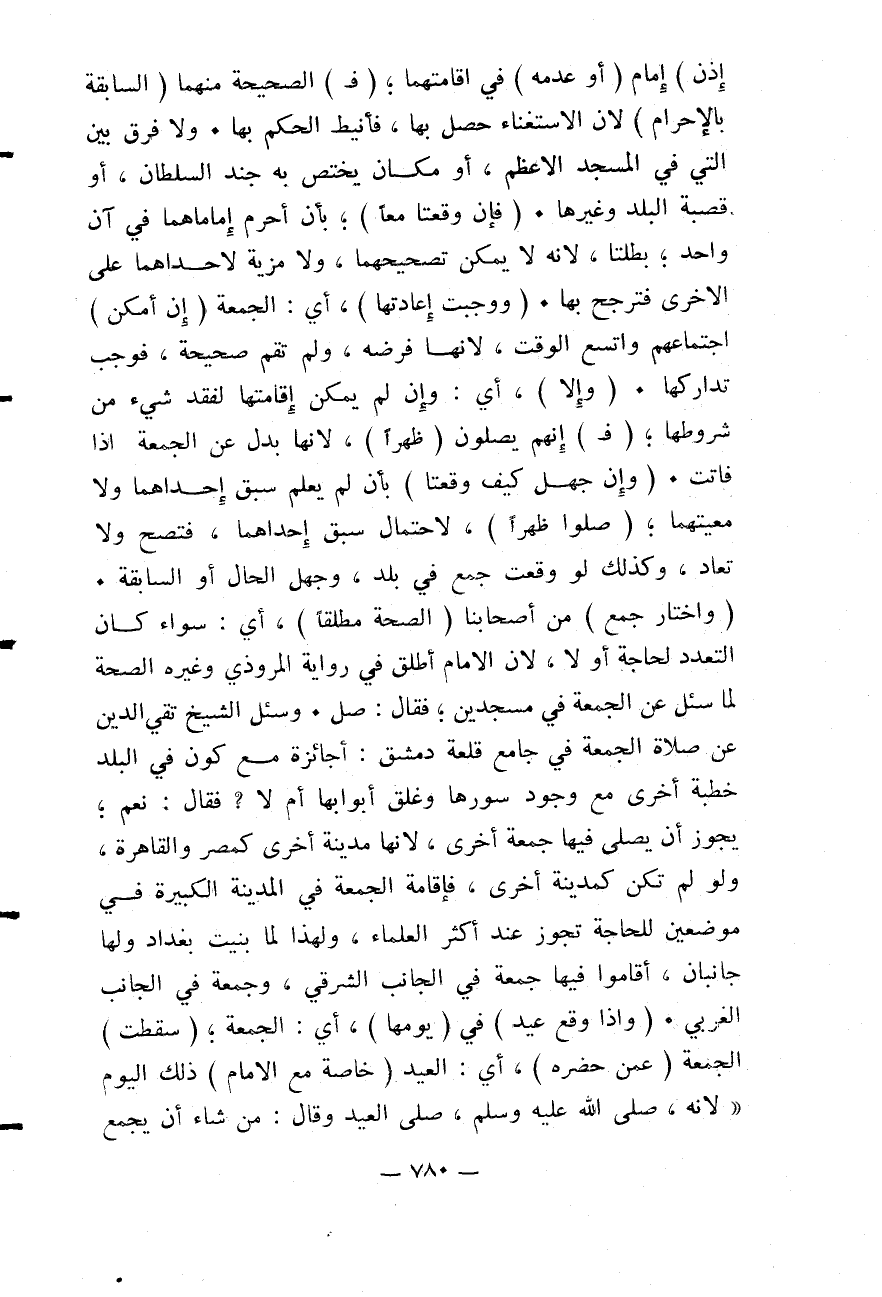 إذن ) إمام ( أو عدمه ) في اقامتهما ؛ ( فـ ) الصحيحة منهما ( السابقة
بالإحرام ) لان الاستغناء حصل بها ، فأنيط الحكم بها • ولا فرق بين
التي في المسجد الاعظم ، أو مكـــان يختص به جند السلطان ، أو
قصبة البلد وغيرها • ( فإن وقعتا معاً ) ؛ بأن أحرم إماماهما في آن
واحد ؛ بطلتا ، لانه لا يمكن تصحيحهما ، ولا مزية لاحـــداهما على
الاخرى فترجح بها • ( ووجبت إعادتها ) ، أي : الجمعة ( إن أمكن )
اجتماعهم واتسع الوقت ، لانهـــا فرضه ، ولم تقم صحيحة ، فوجب
تداركها • ( وإلا ) ، أي : وإن لم يمكن إقامتها لفقد شيء من
شروطها ؛ ( فـ ) إنهم يصلون ( ظهراً ) ، لانها بدل عن الجمعة اذا
فاتت • ( وإن جهـــل كيف وقعتا ) بأن لم يعلم سبق إحـــداهما ولا
معيتهما ؛ ( صلوا ظهراً ) ، لاحتمال سبق إحداهما ، فتصح ولا
تعاد ، وكذلك لو وقعت جمع في بلد ، وجهل الحال أو السابقة •
( واختار جمع ) من أصحابنا ( الصحة مطلقاً ) ، أي : سواء كـــان
التعدد لحاجة أو لا ، لان الامام أطلق في رواية المروذي وغيره الصحة
لما سئل عن الجمعة في مسجدين ؛ فقال : صل • وسئل الشيخ تقي الدين
عن صلاة الجمعة في جامع قلعة دمشق : أجائزة مـــع كون في البلد
خطبة أخرى مع وجود سورها وغلق أبوابها أم لا ? فقال : نعم ؛
يجوز أن يصلى فيها جمعة أخرى ، لانها مدينة أخرى كمصر والقاهرة ،
ولو لم تكن كمدينة أخرى ، فإقامة الجمعة في المدينة الكبيرة فـــي
موضعين للحاجة تجوز عند أكثر العلماء ، ولهذا لما بنيت بغداد ولها
جانبان ، أقاموا فيها جمعة في الجانب الشرقي ، وجمعة في الجانب
الغربي • ( واذا وقع عيد ) في ( يومها ) ، أي : الجمعة ؛ ( سقطت )
الجمعة ( عمن حضره ) ، أي : العيد ( خاصة مع الامام ) ذلك اليوم
« لانه ، صلى الله عليه وسلم ، صلى العيد وقال : من شاء أن يجمع
— ٧٨٠ —